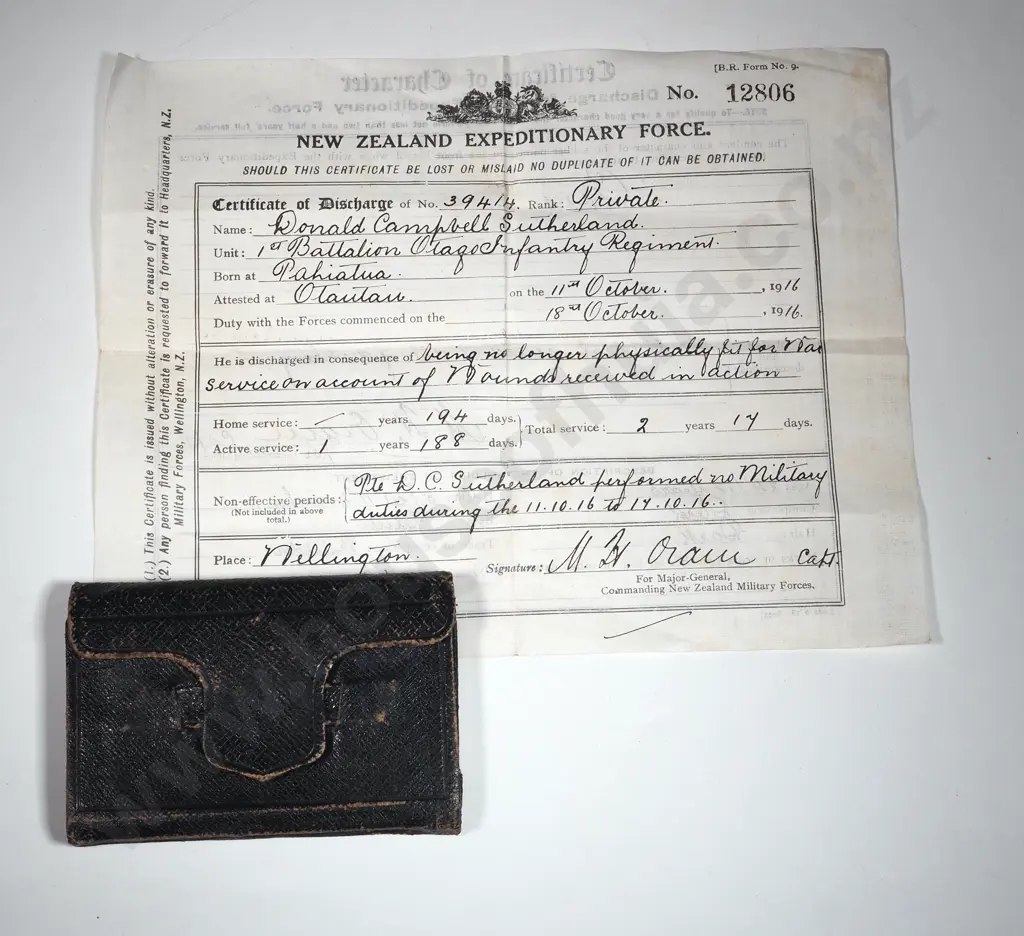 [B.R. Form No. 9.
No. 12806
NEW ZEALAND EXPEDITIONARY FORCE.
SHOULD THIS CERTIFICATE BE LOST OR MISLAID NO DUPLICATE OF IT CAN BE OBTAINED.
Certificate of Discharge of No. 39414. Rank: Private.
Name: Donald Campbell Sutherland.
Unit: 1st Battalion Otago Infantry Regiment.
Born at Pahiatua.
Attested at Otautau. on the 11th October. , 1916
Duty with the Forces commenced on the 18th October. , 1916.
He is discharged in consequence of being no longer physically fit for War
service on account of Wounds received in action
Home service: — years 194 days.
Active service: 1 years 188 days.
Total service: 2 years 17 days.
Non-effective periods:
(Not included in above
total.)
Pte D. C. Sutherland performed no Military
duties during the 11.10.16 to 17.10.16.
Place: Wellington.
Signature: M. H. Oram Capt.
For Major-General,
Commanding New Zealand Military Forces.
(1.) This Certificate is issued without alteration or erasure of any kind.
(2.) Any person finding this Certificate is requested to forward it to Headquarters, N.Z.
Military Forces, Wellington, N.Z.